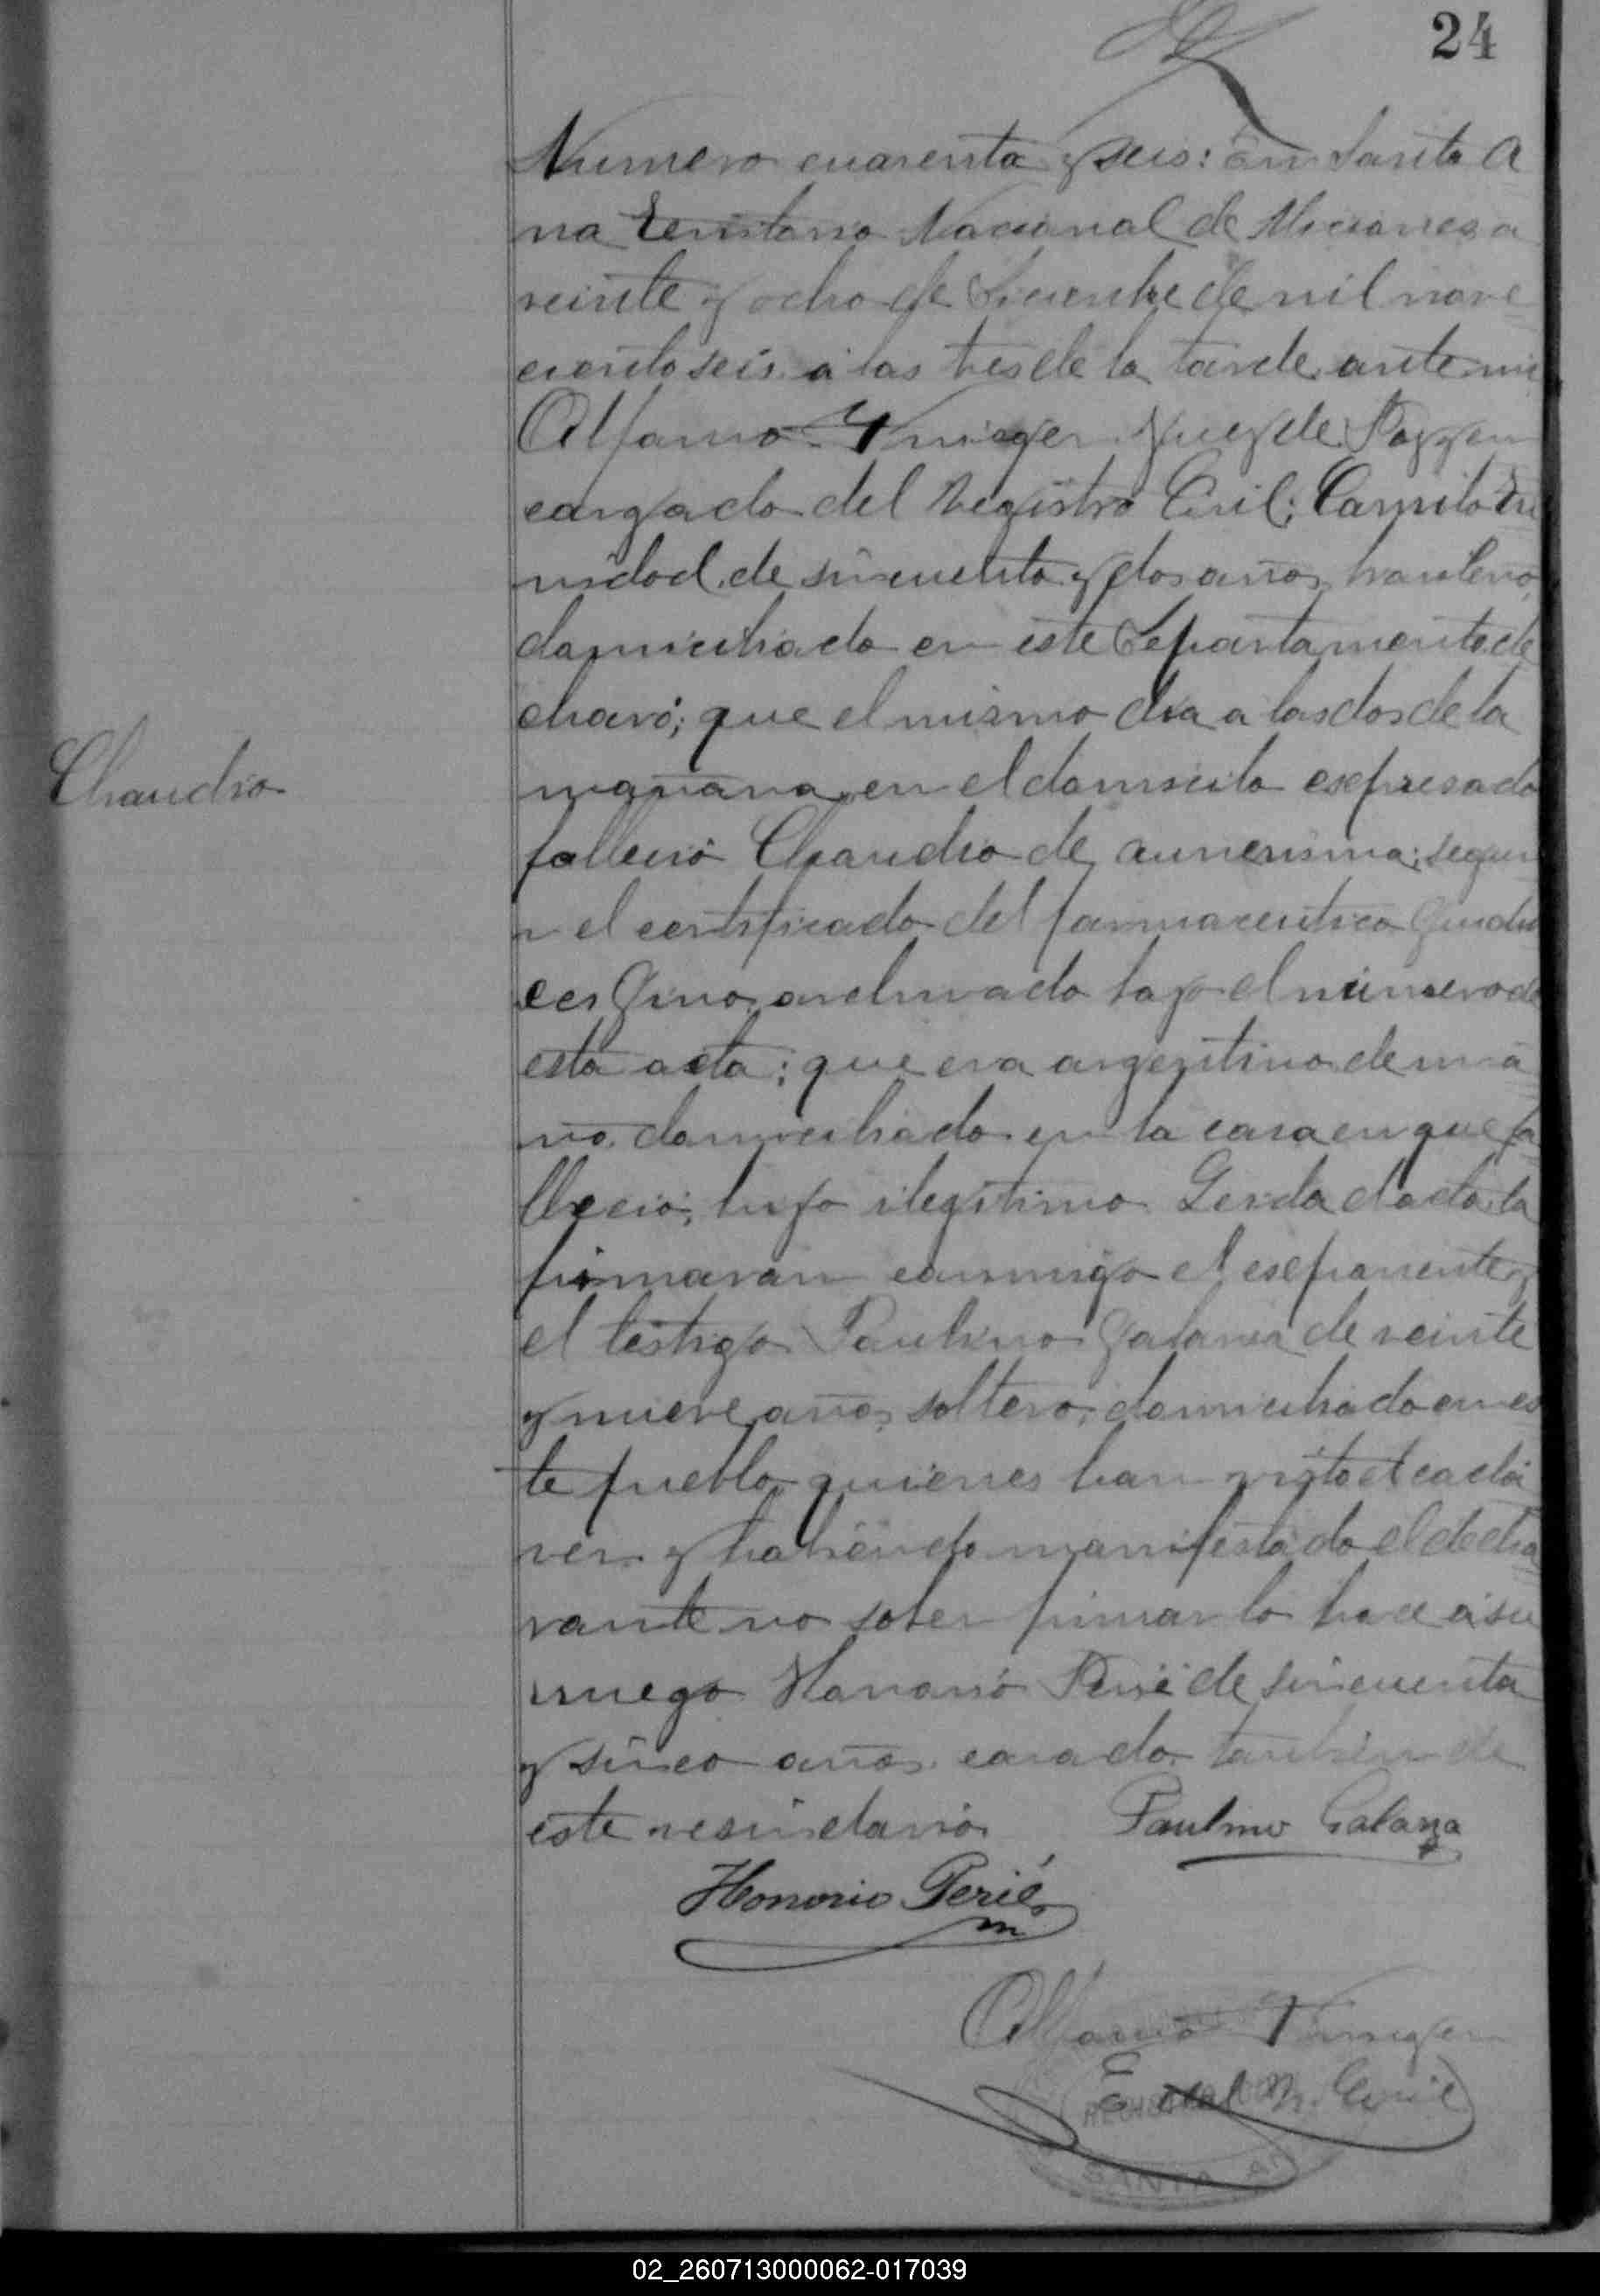 24
Numero cuarenta y seis: En Santa A
na Territorio Nacional de Miciones a
veinte y ocho de Diciembre de mil nove
ciento seis a las tres de la tarde ante mi
Juez de Paz y en
cargado del Registro Civil; Camilo Tri
nidad de sincuenta y dos años, brasilero,
domiciliado en este Departamento de
claró; que el mismo dia a las dos de la
mañana en el domicilio esepresado
Chaudio
falleció Chaudio de aunerisma; segun
el certificado del farmaceutico Guidu
ces Gino archivado bajo el número de
esta acta; que era argentino de un a
ño domiciliado en la casa en que fa
llecio; hijo ilegitimo Leida el acta la
firmaran conmigo el eseponente y
el testigo Paulino Galarza de veinte
y nueve años, soltero, domiciliado en es
te pueblo quienes han visto el cadá
ver y habiendo manifestado el decla
rante no saber firmar lo hace a su
ruego Honorio Perié de sincuenta
y sinco años casado tambien de
este vesindario
Paulino Galarza
Honorio Perié
E. del R. Civil
SANTA A
02_260713000062-017039